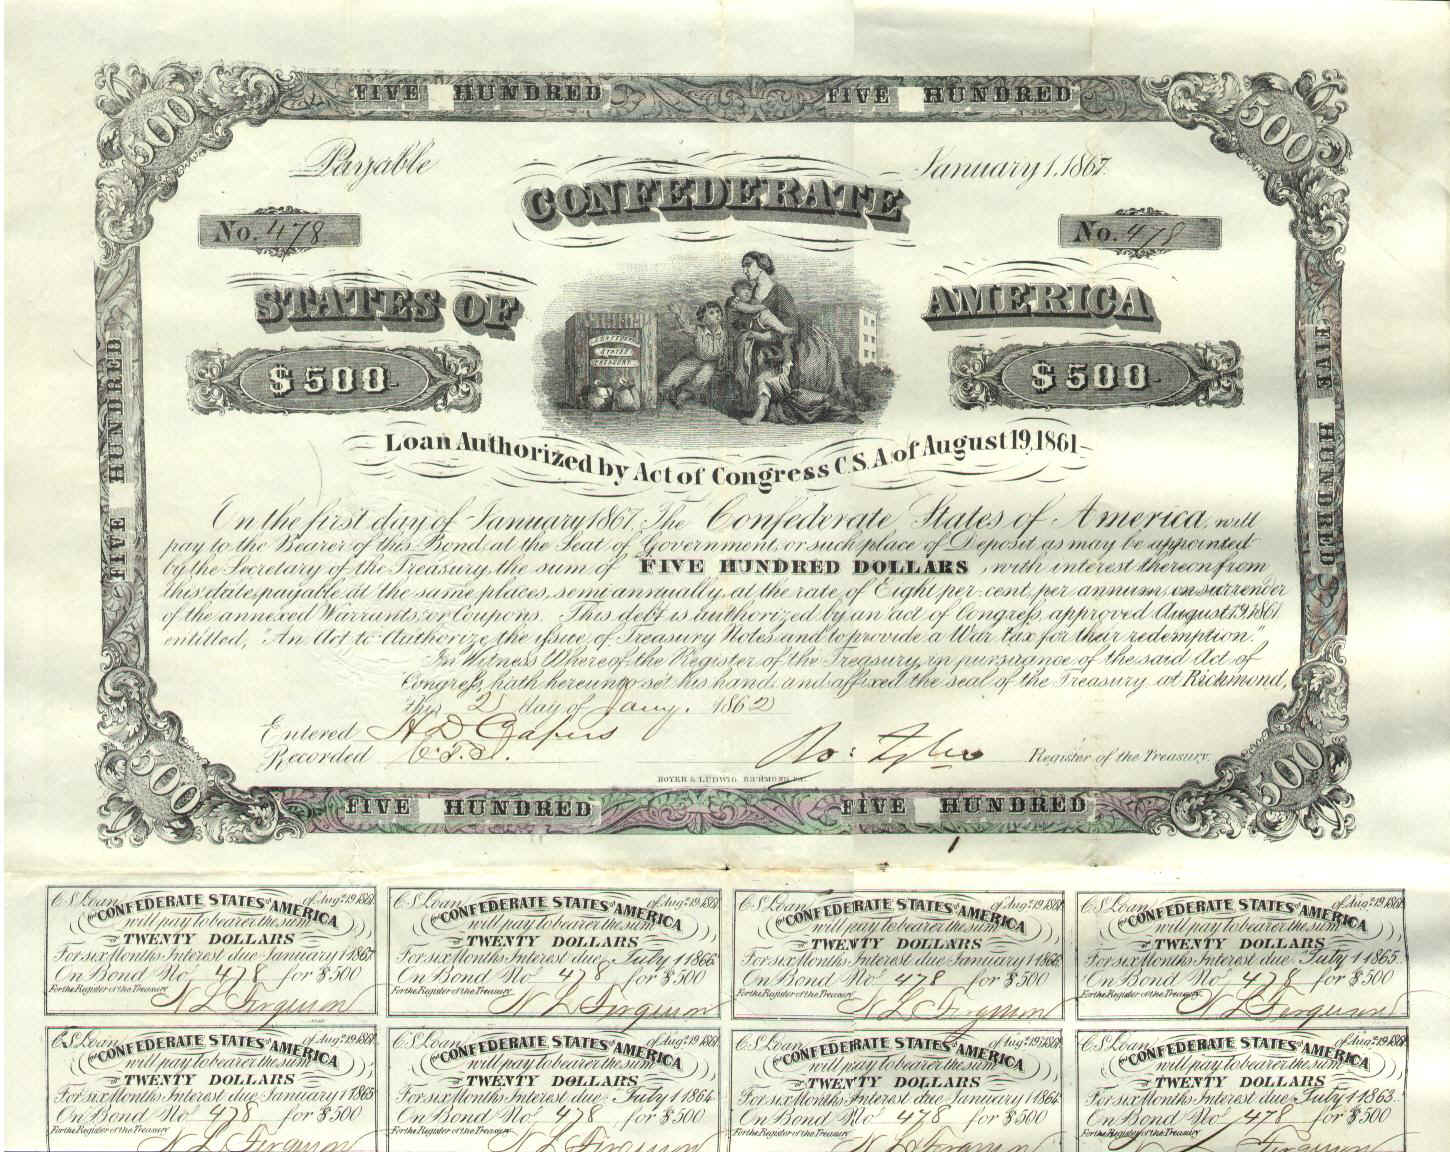 FIVE HUNDRED FIVE HUNDRED
500 500
Payable January 1, 1867.
CONFEDERATE
No. 478 No. 478
STATES OF AMERICA
$500 $500
Loan Authorized by Act of Congress C.S.A. of August 19, 1861
FIVE HUNDRED
FIVE HUNDRED
On the first day of January 1867, The Confederate States of America, will
pay to the Bearer of this Bond, at the Seat of Government, or such place of Deposit as may be appointed
by the Secretary of the Treasury, the sum of FIVE HUNDRED DOLLARS, with interest thereon from
this date, payable at the same places, semi annually, at the rate of Eight per cent, per annum, on surrender
of the annexed Warrants, or Coupons. This debt is authorized by an act of Congress, approved August 19, 1861
entitled, "An Act to Authorize the issue of Treasury Notes and to provide a War tax for their redemption."
In Witness Whereof, the Register of the Treasury, in pursuance of the said Act of
Congress, hath hereunto set his hand, and affixed the seal of the Treasury, at Richmond,
this 2 day of Jany. 1862
Entered H D Capers
Recorded C.T.S. Ro: Tyler Register of the Treasury.
HOYER & LUDWIG, RICHMOND, VA.
500 500
FIVE HUNDRED FIVE HUNDRED
1
C.S. Loan of Aug. 19 1861
The CONFEDERATE STATES of AMERICA
will pay to bearer the sum
of TWENTY DOLLARS
For six Months Interest due January 1 1867
On Bond No. 478 for $500
For the Register of the Treasury
N L Ferguson
C.S. Loan of Aug. 19 1861
The CONFEDERATE STATES of AMERICA
will pay to bearer the sum
of TWENTY DOLLARS
For six Months Interest due July 1 1866
On Bond No. 478 for $500
For the Register of the Treasury
N L Ferguson
C.S. Loan of Aug. 19 1861
The CONFEDERATE STATES of AMERICA
will pay to bearer the sum
of TWENTY DOLLARS
For six Months Interest due January 1 1866
On Bond No. 478 for $500
For the Register of the Treasury
N L Ferguson
C.S. Loan of Aug. 19 1861
The CONFEDERATE STATES of AMERICA
will pay to bearer the sum
of TWENTY DOLLARS
For six Months Interest due July 1 1865
On Bond No. 478 for $500
For the Register of the Treasury
N L Ferguson
C.S. Loan of Aug. 19 1861
The CONFEDERATE STATES of AMERICA
will pay to bearer the sum
of TWENTY DOLLARS
For six Months Interest due January 1 1865
On Bond No. 478 for $500
For the Register of the Treasury
N L Ferguson
C.S. Loan of Aug. 19 1861
The CONFEDERATE STATES of AMERICA
will pay to bearer the sum
of TWENTY DOLLARS
For six Months Interest due July 1 1864
On Bond No. 478 for $500
For the Register of the Treasury
N L Ferguson
C.S. Loan of Aug. 19 1861
The CONFEDERATE STATES of AMERICA
will pay to bearer the sum
of TWENTY DOLLARS
For six Months Interest due January 1 1864
On Bond No. 478 for $500
For the Register of the Treasury
N L Ferguson
C.S. Loan of Aug. 19 1861
The CONFEDERATE STATES of AMERICA
will pay to bearer the sum
of TWENTY DOLLARS
For six Months Interest due July 1 1863
On Bond No. 478 for $500
For the Register of the Treasury
Ferguson